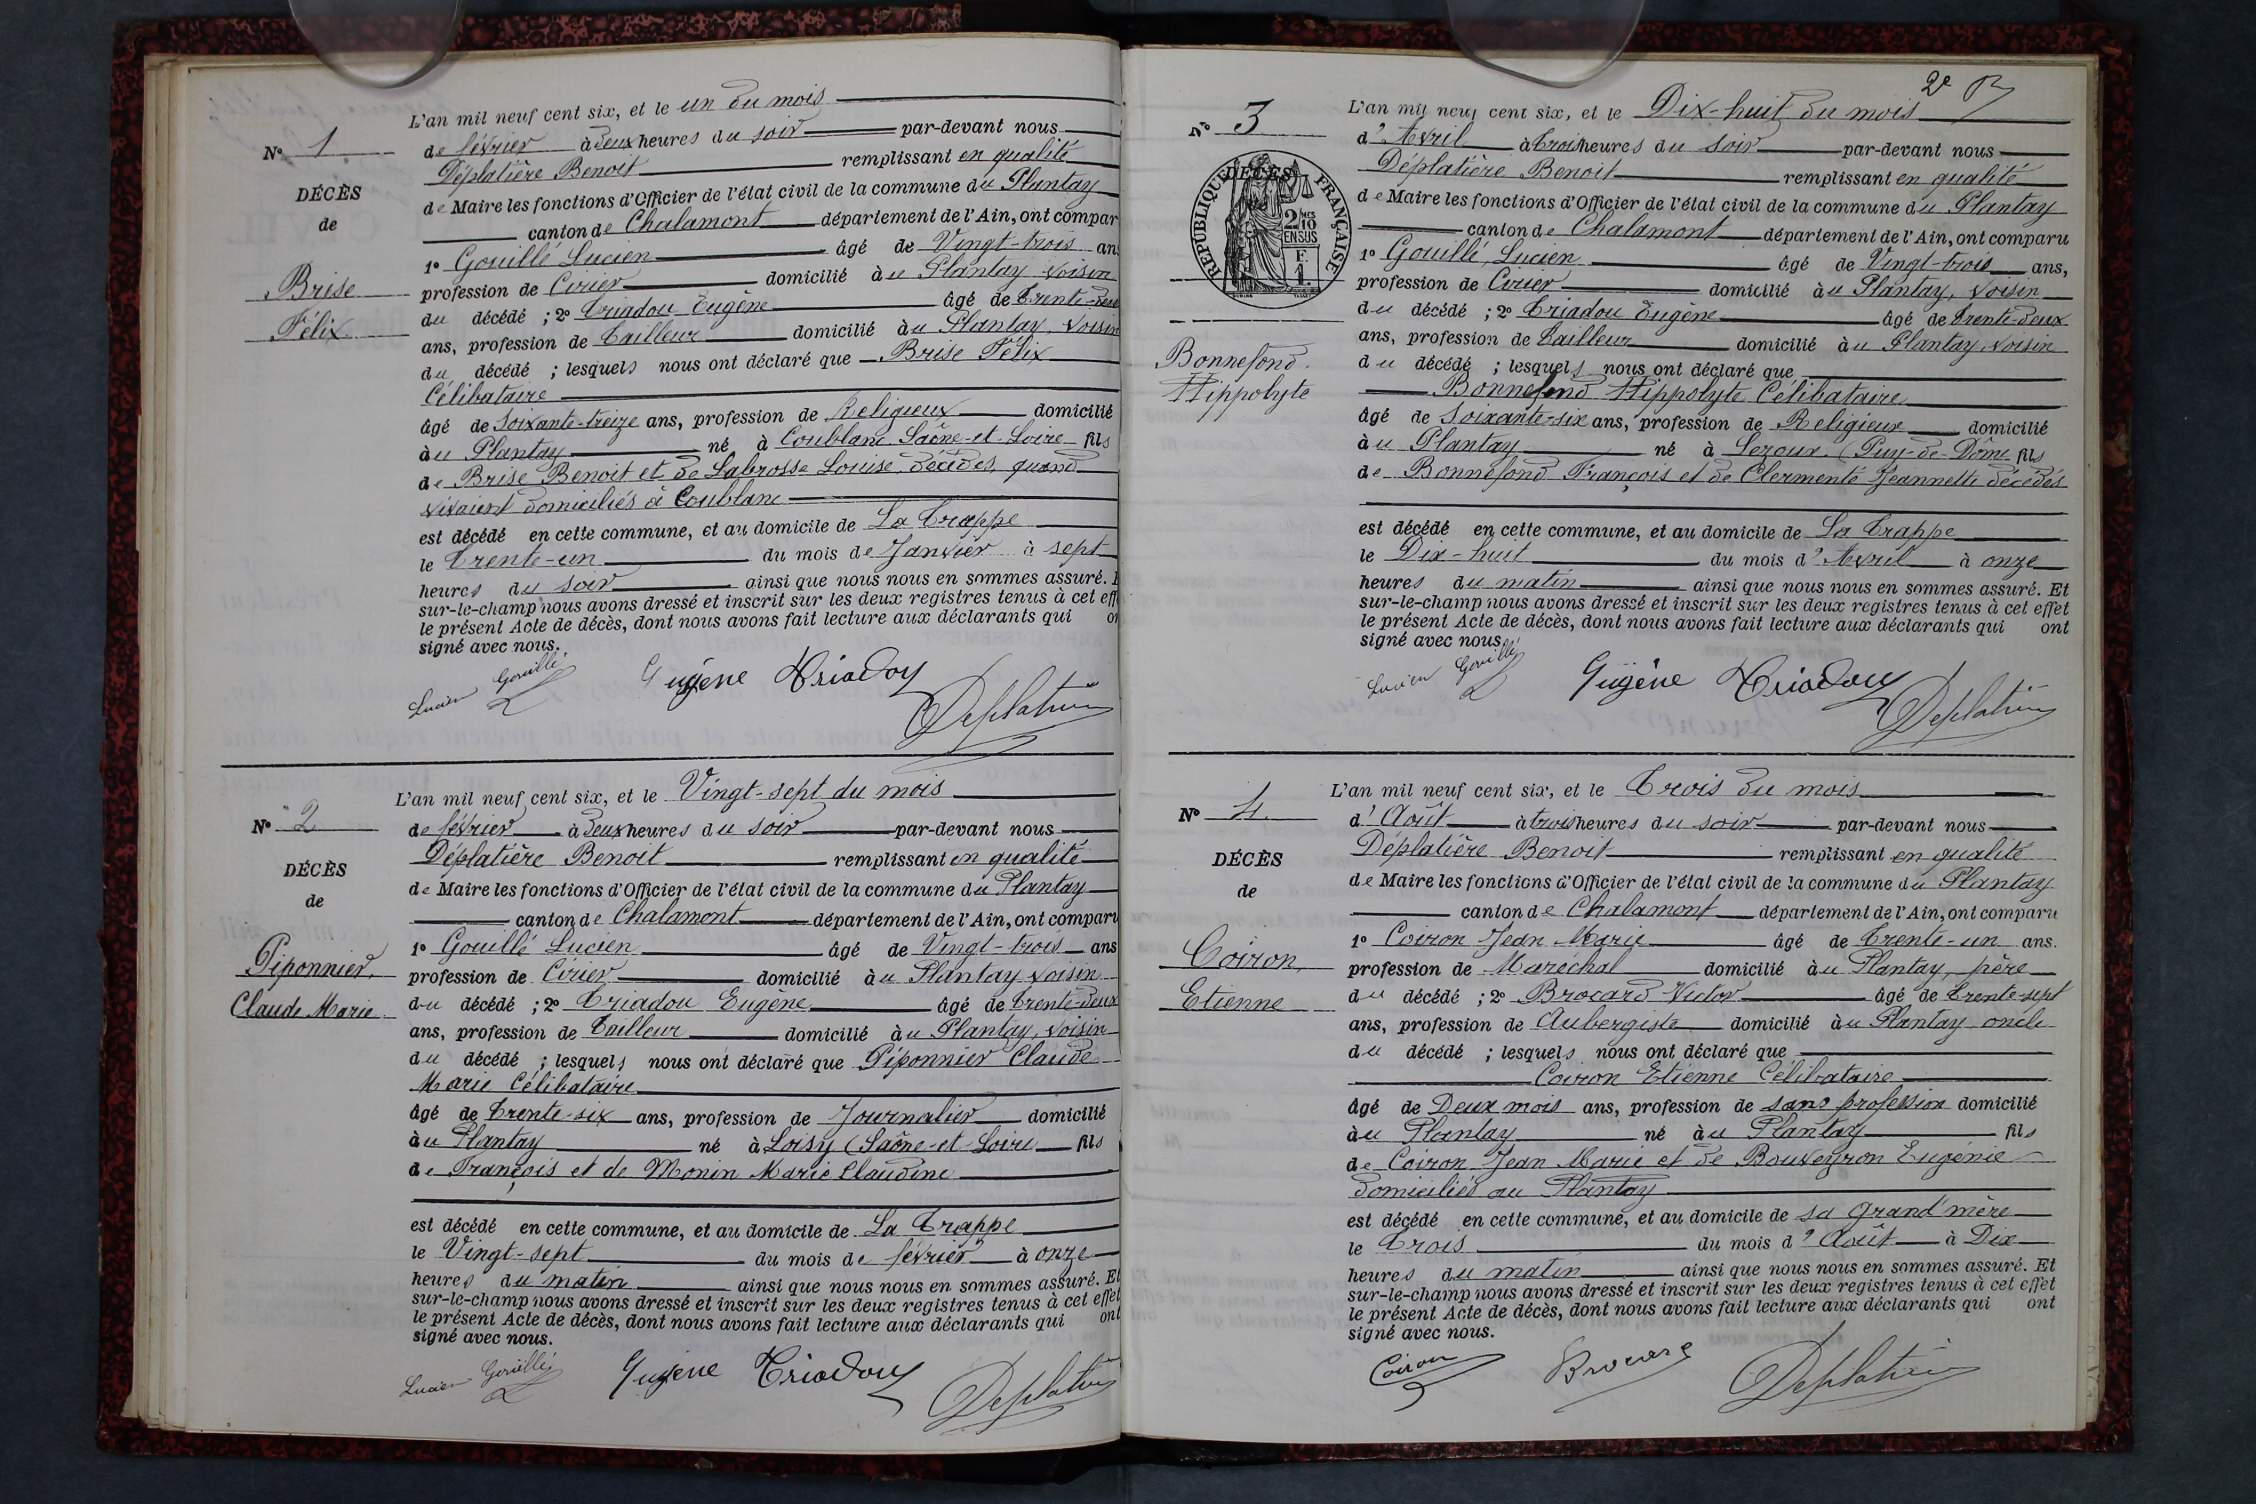 N° 1
DÉCÈS
de
Brise
Félix
L'an mil neuf cent six, et le un du mois
de février à deux heures du soir par-devant nous
Déplatière Benoit remplissant en qualité
de Maire les fonctions d'Officier de l'état civil de la commune du Plantay
canton de Chalamont département de l'Ain, ont compar
1° Gouillé Lucien âgé de Vingt-trois ans
profession de Cirier domicilié au Plantay voisin
du décédé ; 2° Triadou Eugène âgé de trente-deux
ans, profession de tailleur domicilié au Plantay, voisin
du décédé ; lesquels nous ont déclaré que Brise Félix
Célibataire
âgé de soixante-treize ans, profession de Religieux domicilié
au Plantay né à Coublanc Saône-et-Loire fils
de Brise Benoit et de Labrosse Louise, décédés, quand
vivaient domiciliés à Coublanc
est décédé en cette commune, et au domicile de La Trappe
le trente-un du mois de Janvier à sept
heures du soir ainsi que nous nous en sommes assuré. E
sur-le-champ nous avons dressé et inscrit sur les deux registres tenus à cet eff
le présent Acte de décès, dont nous avons fait lecture aux déclarants qui on
signé avec nous.
Lucien Gouillé Eugène Triadou Déplatière
N° 2
DÉCÈS
de
Piponnier
Claude Marie
L'an mil neuf cent six, et le Vingt-sept du mois
de février à deux heures du soir par-devant nous
Déplatière Benoit remplissant en qualité
de Maire les fonctions d'Officier de l'état civil de la commune du Plantay
canton de Chalamont département de l'Ain, ont comparu
1° Gouillé Lucien âgé de Vingt-trois ans
profession de Cirier domicilié au Plantay voisin
du décédé ; 2° Triadou Eugène âgé de trente-deux
ans, profession de tailleur domicilié au Plantay, voisin
du décédé ; lesquels nous ont déclaré que Piponnier Claude
Marie Célibataire
âgé de trente-six ans, profession de Journalier domicilié
au Plantay né à Loisy (Saône-et-Loire fils
de François et de Monin Marie Claudine
est décédé en cette commune, et au domicile de La Trappe
le Vingt-sept du mois de février à onze
heures du matin ainsi que nous nous en sommes assuré. Et
sur-le-champ nous avons dressé et inscrit sur les deux registres tenus à cet effet
le présent Acte de décès, dont nous avons fait lecture aux déclarants qui ont
signé avec nous.
Lucien Gouillé Eugène Triadou Déplatière
2e
N° 3
DÉCÈS
RÉPUBLIQUE FRANÇAISE
2/10 MES
EN SUS
F.
1.
Bonnefond
Hippolyte
L'an mil neuf cent six, et le Dix-huit du mois
d'Avril à trois heures du soir par-devant nous
Déplatière Benoit remplissant en qualité
de Maire les fonctions d'Officier de l'état civil de la commune du Plantay
canton de Chalamont département de l'Ain, ont comparu
1° Gouillé, Lucien âgé de Vingt-trois ans,
profession de Cirier domicilié au Plantay, voisin
du décédé ; 2° Triadou Eugène âgé de trente-deux
ans, profession de tailleur domicilié au Plantay voisin
du décédé ; lesquels nous ont déclaré que
Bonnefond Hippolyte Célibataire
âgé de soixante-six ans, profession de Religieux domicilié
au Plantay né à Lezoux (Puy-de-Dôme fils
de Bonnefond François et de Clermenté Jeannette décédés
est décédé en cette commune, et au domicile de La Trappe
le Dix-huit du mois d'Avril à onze
heures du matin ainsi que nous nous en sommes assuré. Et
sur-le-champ nous avons dressé et inscrit sur les deux registres tenus à cet effet
le présent Acte de décès, dont nous avons fait lecture aux déclarants qui ont
signé avec nous.
Lucien Gouillé Eugène Triadou Déplatière
N° 4
DÉCÈS
de
Coiron,
Etienne
L'an mil neuf cent six, et le trois du mois
d'Août à trois heures du soir par-devant nous
Déplatière Benoit remplissant en qualité
de Maire les fonctions d'Officier de l'état civil de la commune du Plantay
canton de Chalamont département de l'Ain, ont comparu
1° Coiron Jean Marie âgé de trente-un ans.
profession de Maréchal domicilié au Plantay, père
du décédé ; 2° Brocard Victor âgé de trente-sept
ans, profession de Aubergiste domicilié au Plantay oncle
du décédé ; lesquels nous ont déclaré que
Coiron Etienne Célibataire
âgé de Deux mois ans, profession de sans profession domicilié
au Plantay né au Plantay fils
de Coiron Jean Marie et de Bouveyron Eugénie
domiciliés au Plantay
est décédé en cette commune, et au domicile de sa grand'mère
le trois du mois d'Août à Dix
heures du matin ainsi que nous nous en sommes assuré. Et
sur-le-champ nous avons dressé et inscrit sur les deux registres tenus à cet effet
le présent Acte de décès, dont nous avons fait lecture aux déclarants qui ont
signé avec nous.
Coiron Brocard Déplatière